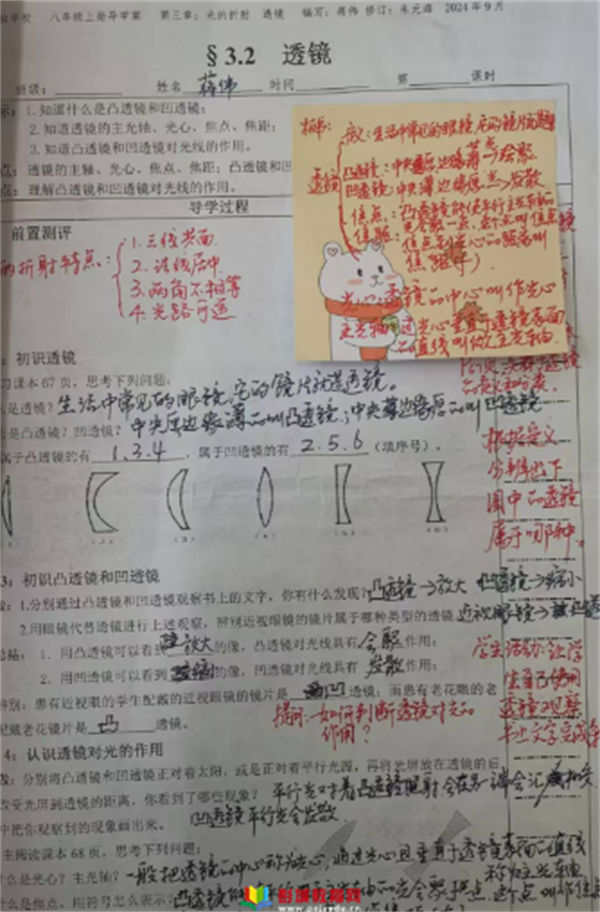 学校 八年级上册导学案 第三章：光的折射 透镜 编写：蒋伟 修订：朱元海 2024年9月
§3.2 透镜
班级： 姓名 蒋伟 时间 第 课时
1.知道什么是凸透镜和凹透镜；
2.知道透镜的主光轴、光心、焦点、焦距；
3.知道凸透镜和凹透镜对光线的作用。
点：透镜的主轴、光心、焦点、焦距；凸透镜和凹
点：理解凸透镜和凹透镜对光线的作用。
导学过程
前置测评
的折射特点：
1.三线共面
2.法线居中
3.两角不相等
4.光路可逆
板书：
透镜
生活中常见的眼镜，它的镜片就是透镜
凸透镜：中央厚边缘薄 会聚
凹透镜：中央薄边缘厚 发散
焦点：
焦距：焦点到光心的距离叫
焦距（f）
光心：透镜的中心叫作光心
主光轴：过光心垂直于透镜表面
的直线叫做主光轴
：初识透镜
习课本67页，思考下列问题：
是透镜？生活中常见的眼镜，它的镜片就是透镜。
是凸透镜？凹透镜？中央厚边缘薄的叫凸透镜；中央薄边缘厚的叫凹透镜
属于凸透镜的有 1.3.4 ，属于凹透镜的有 2.5.6 （填序号）。
根据定义
分辨出下
图中的透镜
属于哪种。
3：初识凸透镜和凹透镜
1.分别通过凸透镜和凹透镜观察书上的文字，你有什么发现？凸透镜→放大 凹透镜→缩小
2.用眼镜代替透镜进行上述观察，辨别近视眼镜的镜片属于哪种类型的透镜
1．用凸透镜可以看到 放大 的像，凸透镜对光线具有 会聚 作用；
2．用凹透镜可以看到 缩小 的像，凹透镜对光线具有 发散 作用；
辨别：患有近视眼的学生配戴的近视眼镜的镜片是 凹 透镜；而患有老花眼的老
配戴老花镜片是 凸 透镜。
提问：如何判断透镜对光的
作用？
学生活动：让学
生自己使用
透镜观察
书上文字完成
4：认识透镜对光的作用
分别将凸透镜和凹透镜正对着太阳，或是正对着平行光源，再将光屏放在透镜的后
改变光屏到透镜的距离，你看到了哪些现象？平行光对着凸透镜照射会在另一端会汇
中把你观察到的现象画出来。 凹透镜平行光会发散
主阅读课本68页，思考下列问题：
什么是光心？主光轴？一般把透镜的中心称为光心，通过光心且垂直于透镜表面的直线
称为主光轴
什么是焦点，用符号怎么表示？